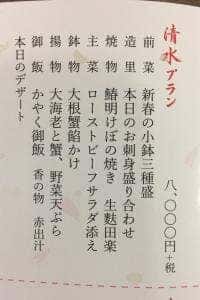 清水プラン
八、〇〇〇円+税
前菜 新春の小鉢三種盛
造里 本日のお刺身盛り合わせ
焼物 鰆明けぼの焼き 生麩田楽
主菜 ローストビーフサラダ添え
鉢物 大根蟹餡かけ
揚物 大海老と蟹、野菜天ぷら
御飯 かやく御飯 香の物 赤出汁
本日のデザート